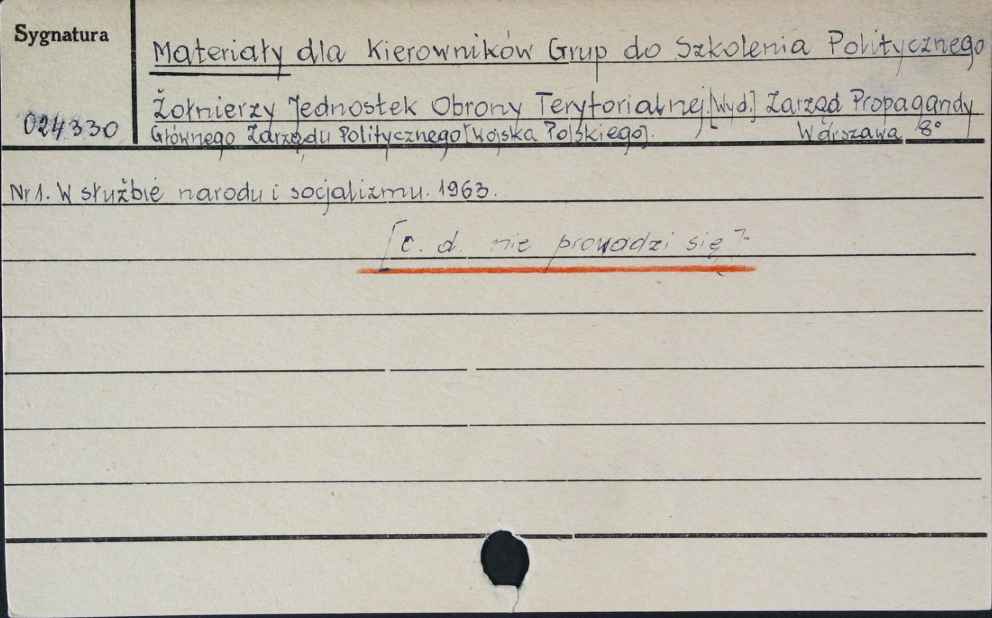 Sygnatura
Materiały dla Kierowników Grup do Szkolenia Politycznego
Żołnierzy Jednostek Obrony Terytorialnej. [Wyd.] Zarząd Propagandy
024330
Głównego Zarządu Politycznego [Wojska Polskiego]. Warszawa 8°
Nr 1. W służbie narodu i socjalizmu. 1963.
[c. d. nie prowadzi się]